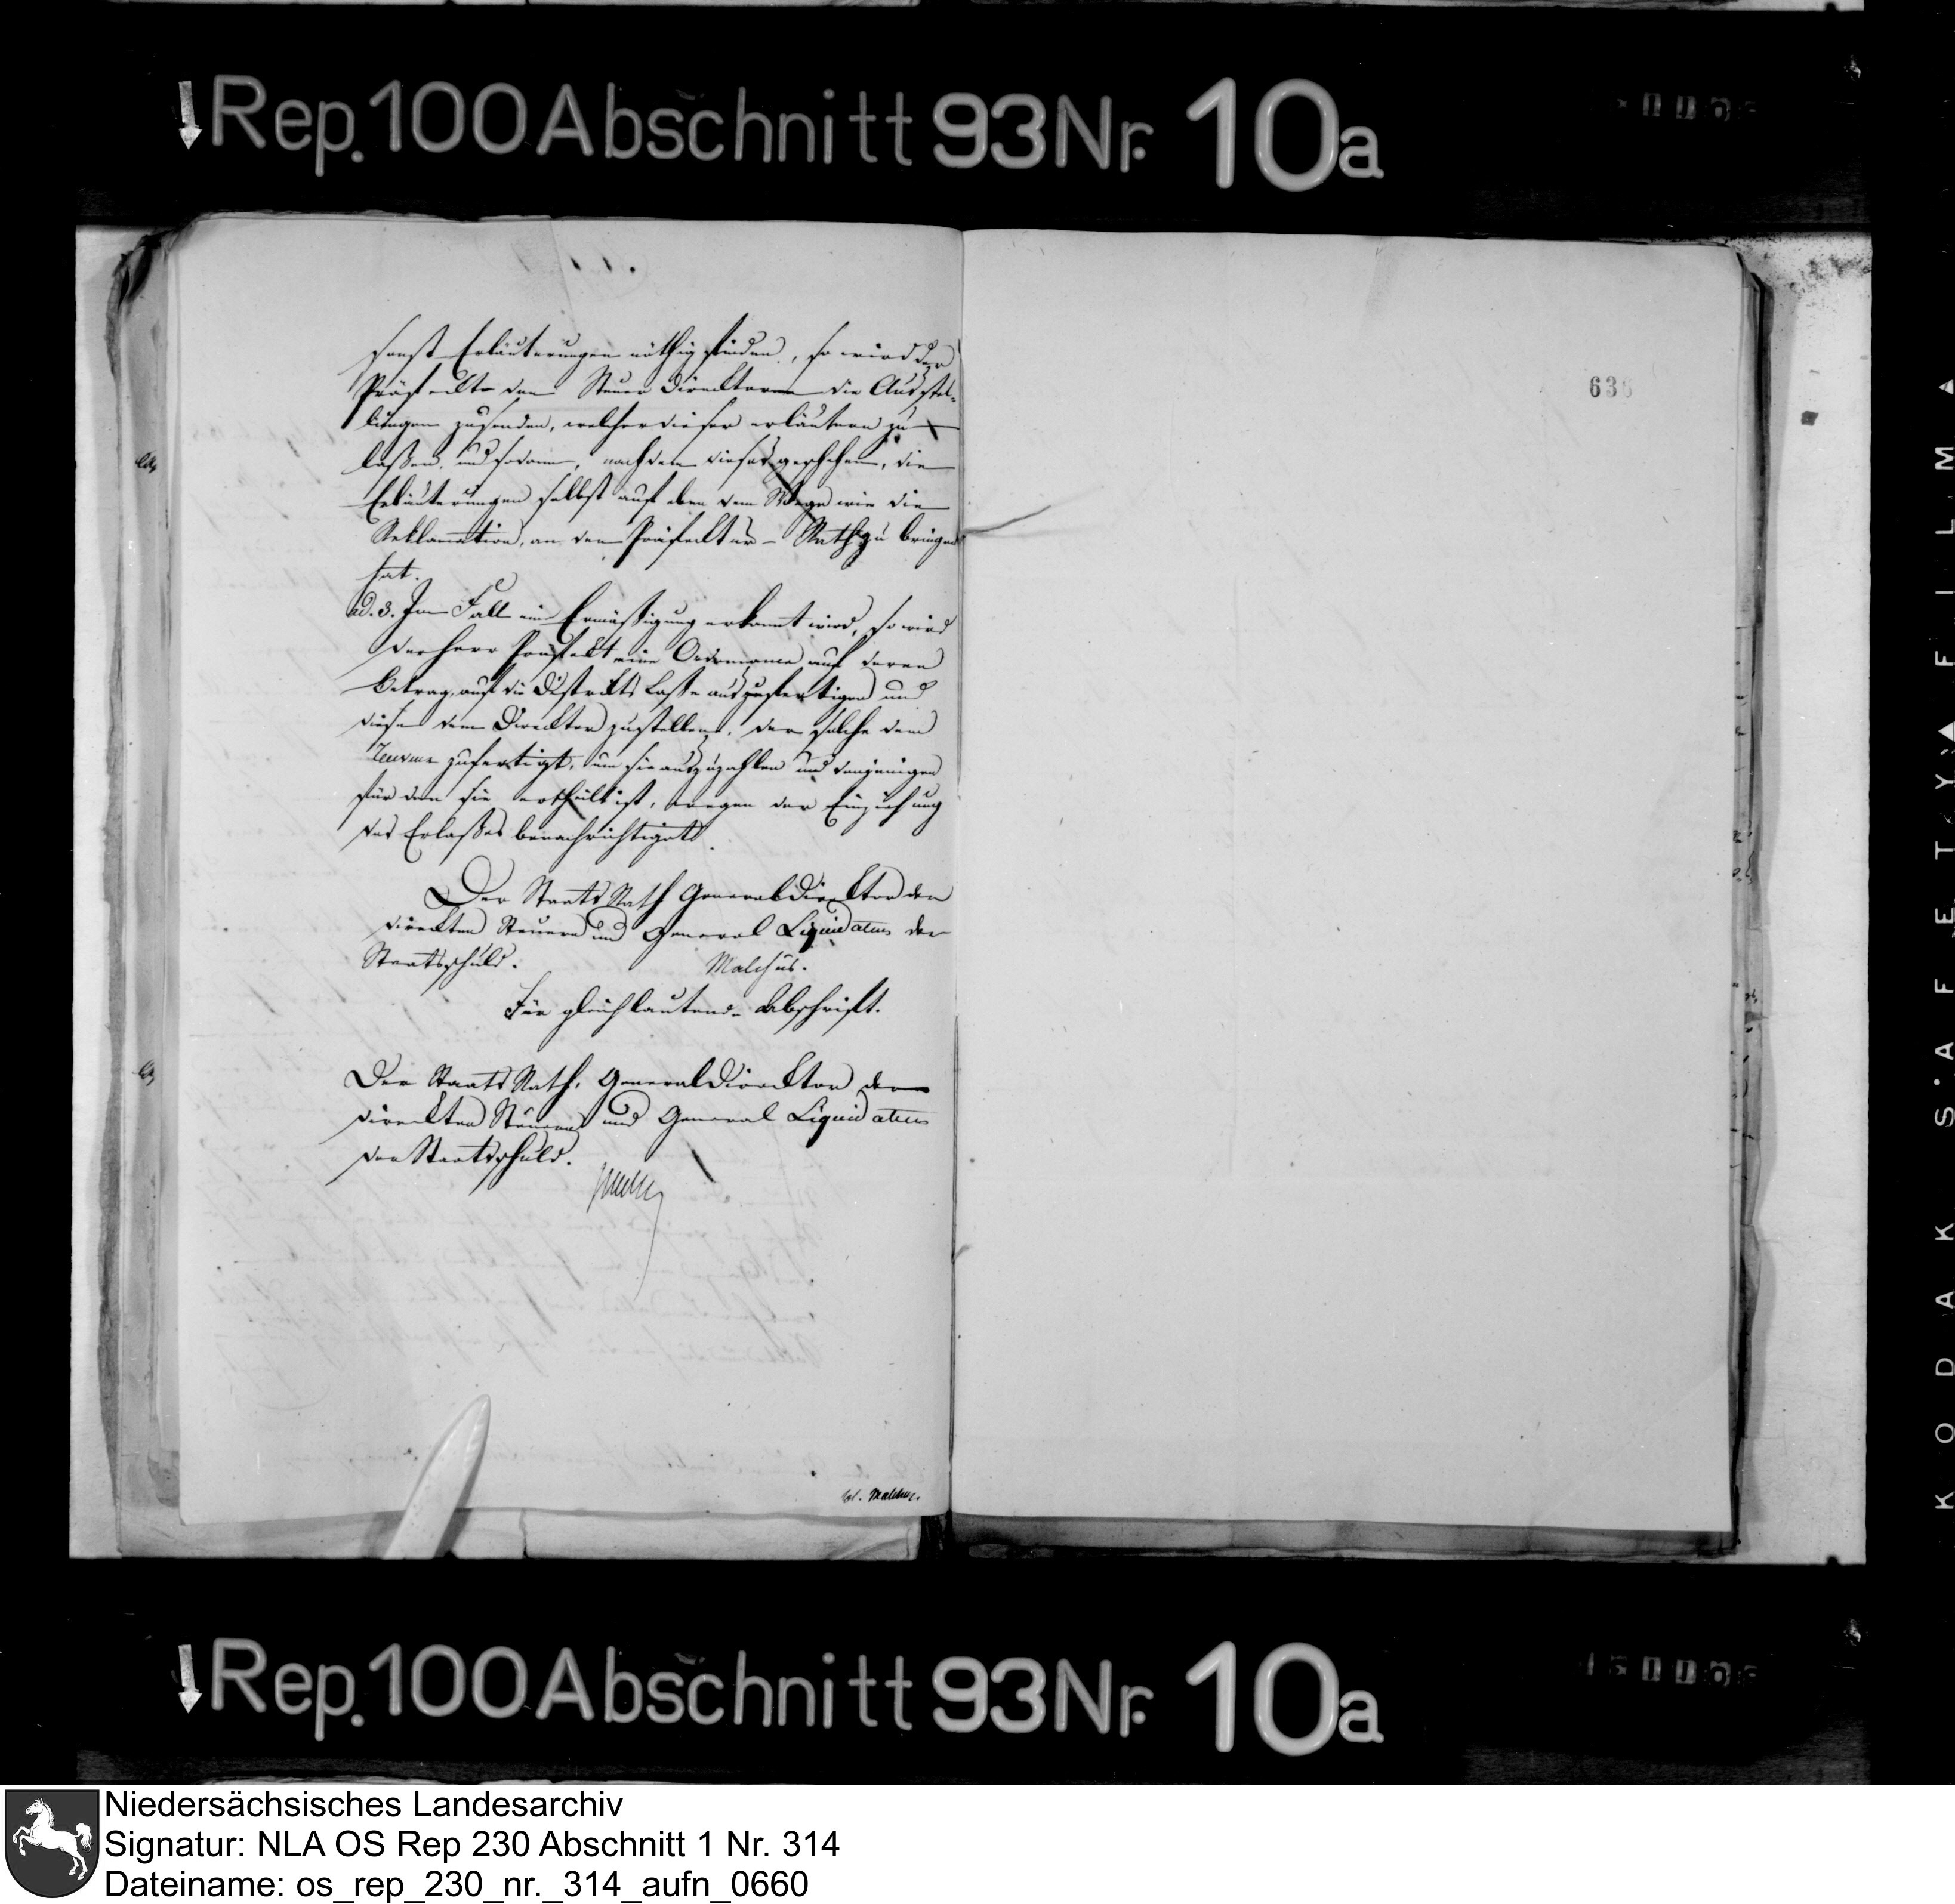 Rep. 100 Abschnitt 93 Nr. 10a
sonst Erläuterungen nöthig finden, so wird der
Präfekt dem Steuer Direktor die Ausstel-
lungen zusenden, welcher dieser erläutern zu
laßen, und sodann, nachdem dieses geschehen, die
Erläuterungen selbst auf eben dem Wege wie die
Reklamation, an den Präfektur-Rath zu bringen
hat.
ad. 3. Im Fall eine Ermäßigung erkannt wird, so wird
der Herr Präfekt eine Ordonnance auf deren
Betrag, auf die Distrikts Casse auszufertigen und
diese dem Direktor zustellen, der solche dem
zufertigt, um sie auszuzahlen und denjenigen
für den sie ertheilt ist, wegen der Einziehung
des Erlaßes benachrichtigt.
Der Staats Rath General Direktor der
direkten Steuern und General Liquidateur der
Staatsschuld.
Malchus.
Für gleichlautende Abschrift.
Der Staats Rath, General Direktor der
direkten Steuern und General Liquidateur
der Staatsschuld.
Malchus.
638
Rep. 100 Abschnitt 93 Nr. 10a
KODAK SAFETY FILM
Niedersächsisches Landesarchiv
Signatur: NLA OS Rep 230 Abschnitt 1 Nr. 314
Dateiname: os_rep_230_nr._314_aufn_0660